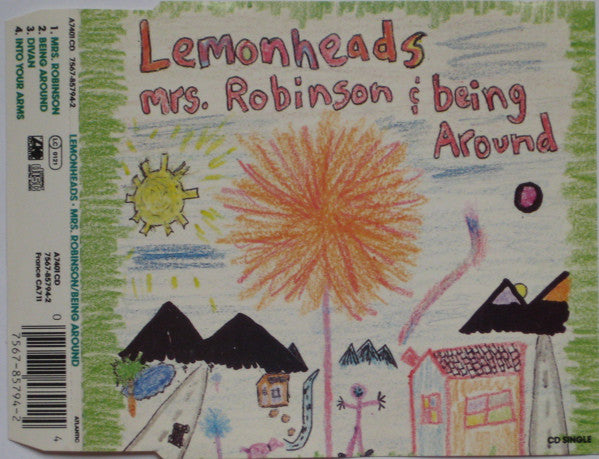 Lemonheads
mrs. Robinson & being
Around
CD SINGLE
A7401 CD 7567-85794-2
1. MRS. ROBINSON
2. BEING AROUND
3. DIVAN
4. INTO YOUR ARMS
LEMONHEADS · MRS. ROBINSON/BEING AROUND
LC 0121
A7401 CD
7567-85794-2
France CA711
0
7567-85794-2
4
ATLANTIC